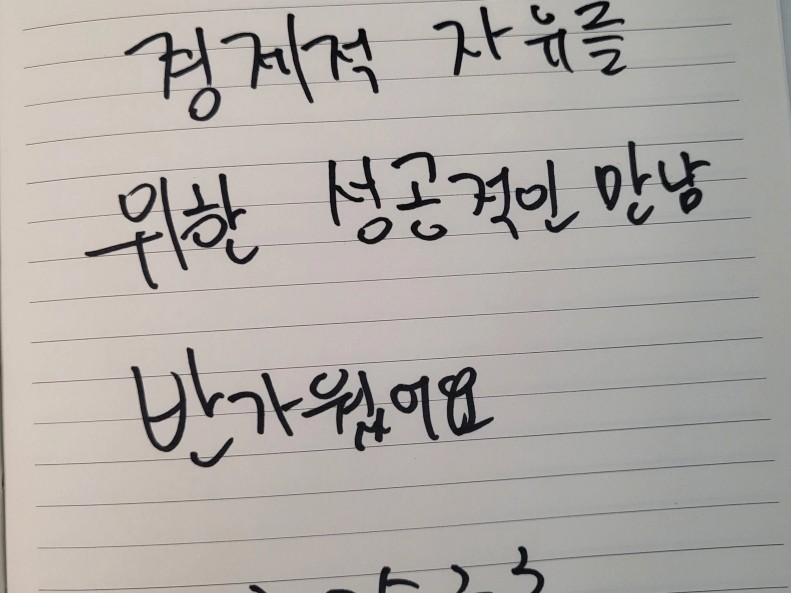 경제적 자유를
위한 성공적인 만남
반가웠어요